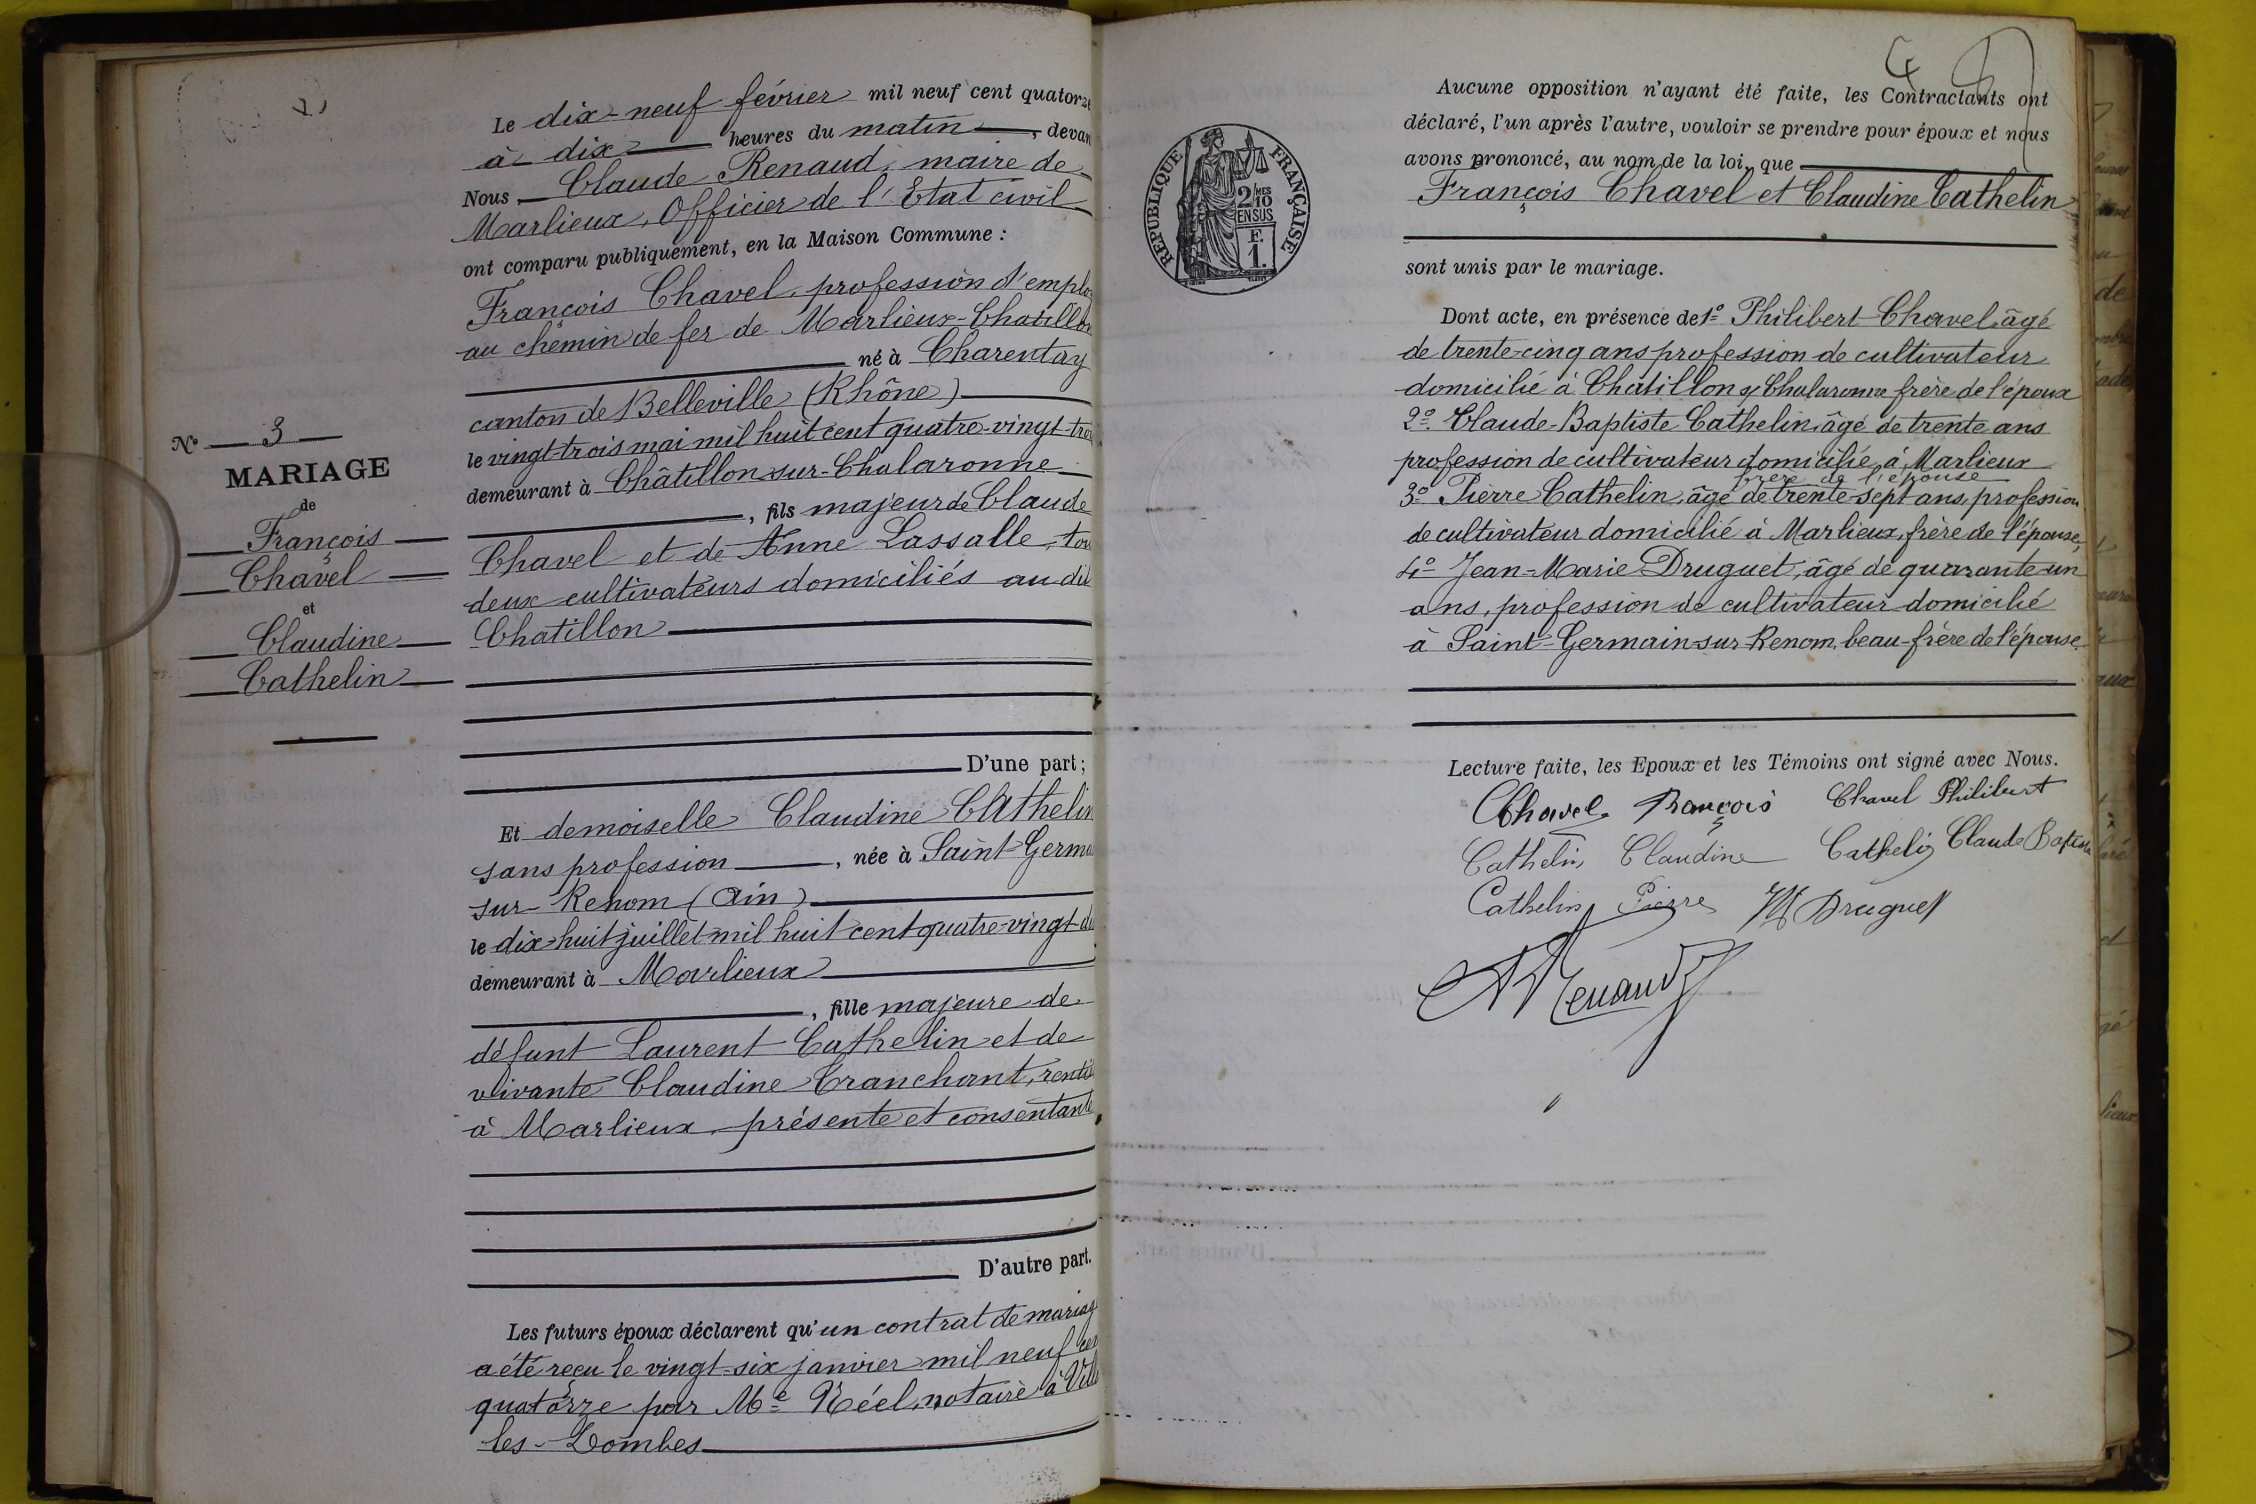 N° 3
MARIAGE
de
François
Chavel
et
Claudine
Cathelin
Le dix-neuf février mil neuf cent quatorze
à dix heures du matin, devan
Nous Claude Renaud, maire de
Marlieux, Officier de l'Etat civil
ont comparu publiquement, en la Maison Commune :
François Chavel, profession d'emplo
au chemin de fer de Marlieux-Chatillon
né à Charentay
canton de Belleville (Rhône)
le vingt-trois mai mil huit cent quatre-vingt-troi
demeurant à Châtillon-sur-Chalaronne
, fils majeur de Claude
Chavel et de Anne Lassalle, tou
deux cultivateurs domiciliés au dit
Chatillon
D'une part ;
Et demoiselle Claudine Cathelin
sans profession, née à Saint-Germa
sur-Renom (Ain)
le dix-huit juillet mil huit cent quatre-vingt-di
demeurant à Marlieux
, fille majeure de
défunt Laurent Cathelin et de
vivante Claudine Tranchant, renti
à Marlieux, présente et consentante
D'autre part.
Les futurs époux déclarent qu'un contrat de mariag
a été reçu le vingt-six janvier mil neuf cen
quatorze par Me Réel, notaire à Vill
les-Dombes
REPUBLIQUE FRANÇAISE
2/MES
10
EN SUS
F.
1.
Aucune opposition n'ayant été faite, les Contractants ont
déclaré, l'un après l'autre, vouloir se prendre pour époux et nous
avons prononcé, au nom de la loi, que
François Chavel et Claudine Cathelin
sont unis par le mariage.
Dont acte, en présence de 1° Philibert Chavel, âgé
de trente-cinq ans profession de cultivateur
domicilié à Châtillon s/ Chalaronne frère de l'époux
2° Claude-Baptiste Cathelin, âgé de trente ans
profession de cultivateur domicilié à Marlieux
frère de l'épouse
3° Pierre Cathelin, âgé de trente-sept ans, profession
de cultivateur domicilié à Marlieux, frère de l'épouse,
4° Jean-Marie Druguet, âgé de quarante-un
ans, profession de cultivateur domicilié
à Saint-Germain-sur-Renom, beau-frère de l'épouse.
Lecture faite, les Epoux et les Témoins ont signé avec Nous.
Chavel François Chavel Philibert
Cathelin Claudine Cathelin Claude Baptiste
Cathelin Pierre JM Druguet
Renaud